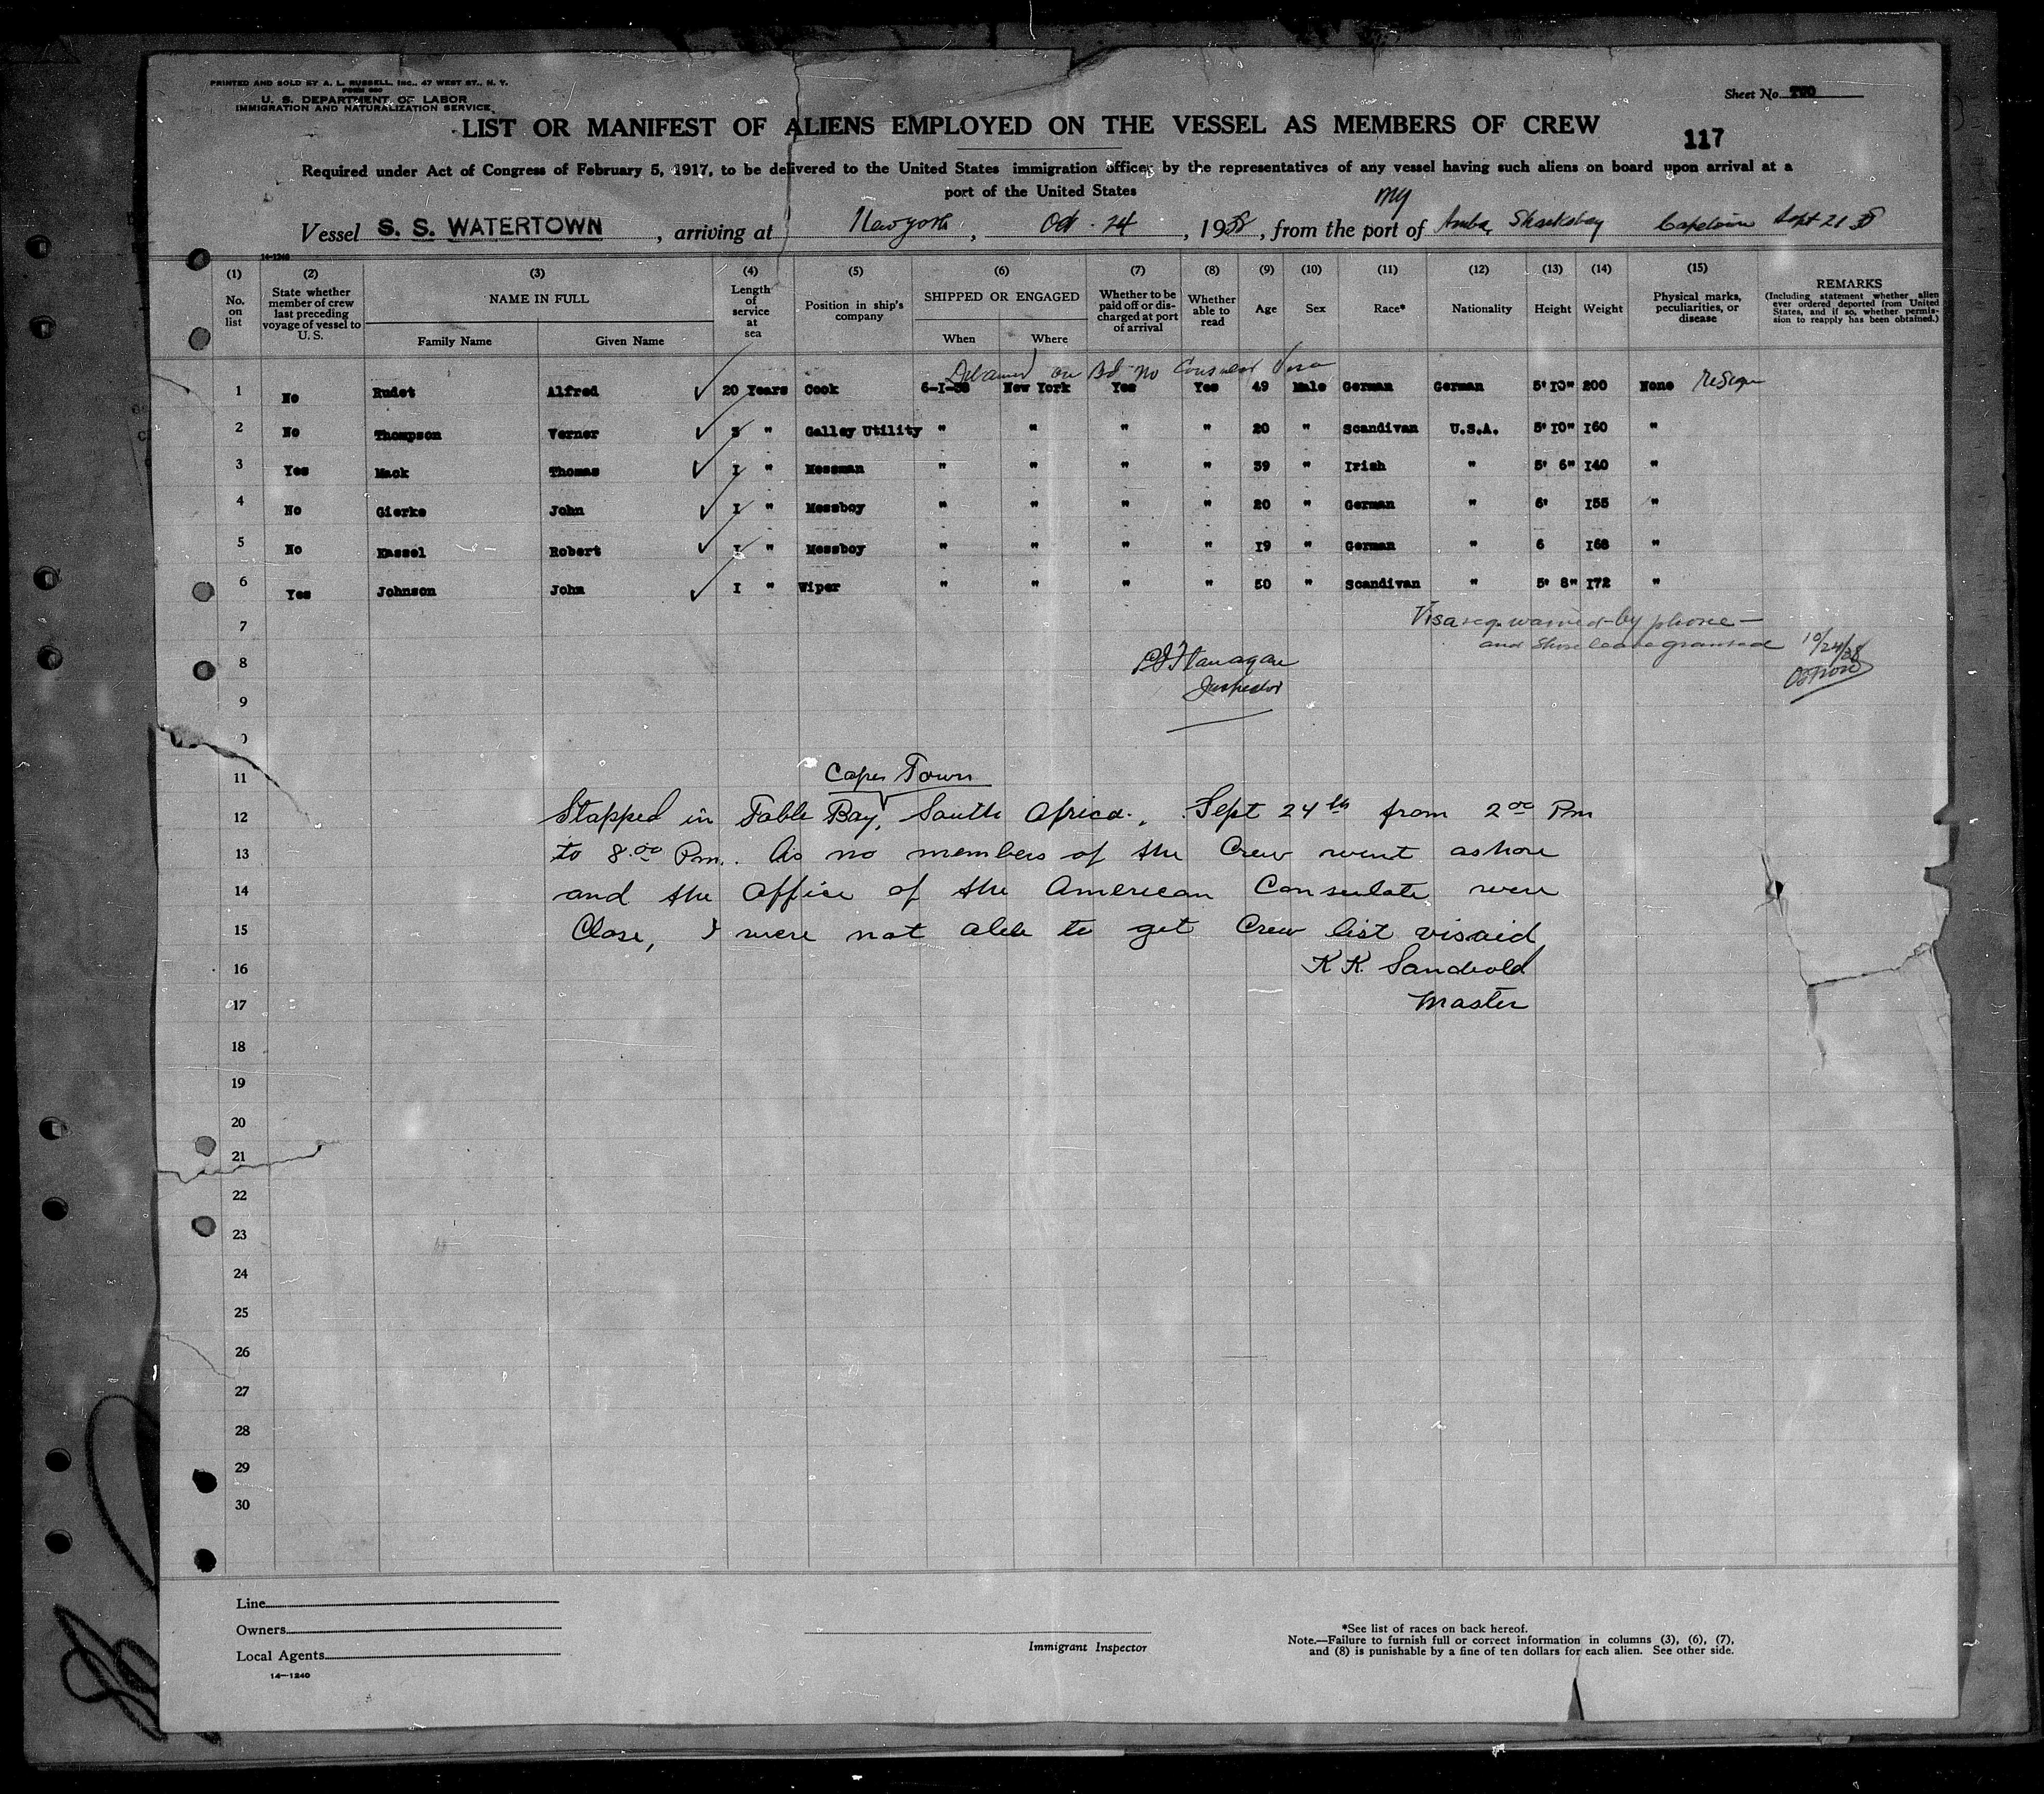 PRINTED AND SOLD BY A. L. RUSSELL, INC., 47 WEST ST., N. Y.
FORM 680
U. S. DEPARTMENT OF LABOR
IMMIGRATION AND NATURALIZATION SERVICE
Sheet No. TWO
LIST OR MANIFEST OF ALIENS EMPLOYED ON THE VESSEL AS MEMBERS OF CREW
117
Required under Act of Congress of February 5, 1917, to be delivered to the United States immigration officer by the representatives of any vessel having such aliens on board upon arrival at a
port of the United States
Vessel S. S. WATERTOWN, arriving at New york, Oct. 24, 1938, from the port of Sharksbay Capetown Sept 21 38
14-1240
(1) (2) (3) (4) (5) (6) (7) (8) (9) (10) (11) (12) (13) (14) (15)
No. on list
State whether member of crew last preceding voyage of vessel to U. S.
NAME IN FULL
Family Name Given Name
Length of service at sea
Position in ship's company
SHIPPED OR ENGAGED
When Where
Whether to be paid off or discharged at port of arrival
Whether able to read
Age
Sex
Race*
Nationality
Height
Weight
Physical marks, peculiarities, or disease
REMARKS
(Including statement whether alien ever ordered deported from United States, and if so, whether permission to reapply has been obtained.)
Detained on Bd no Consular Visa
1 No Rudet Alfred 20 Years Cook 6-I-38 New York Yes Yes 49 Male German German 5' I0" 200 None Resign
2 No Thompson Verner 3 " Galley Utility " " " " 20 " Scandivan U.S.A. 5' I0" I60 "
3 Yes Mack Thomas I " Messman " " " " 39 " Irish " 5' 6" I40 "
4 No Gierke John I " Messboy " " " " 20 " German " 6' I55 "
5 No Kassel Robert I " Messboy " " " " I9 " German " 6 I68 "
6 Yes Johnson John I " Wiper " " " " 50 " Scandivan " 5' 8" I72 "
7 Visa req. waived by phone —
and shore leave granted 10/24/38
8 Flanagan
Inspector
9
0
11 Cape Town
12 Stopped in Table Bay, South Africa. Sept 24th from 2 00 Pm
13 to 8.00 Pm. As no members of the Crew went ashore
14 and the office of the American Consulate were
15 Close, I were not able to get Crew list visaid
16 K K. Sandvold
17 Master
18
19
20
21
22
23
24
25
26
27
28
29
30
Line
Owners
Local Agents
14-1240
Immigrant Inspector
*See list of races on back hereof.
Note.—Failure to furnish full or correct information in columns (3), (6), (7),
and (8) is punishable by a fine of ten dollars for each alien. See other side.